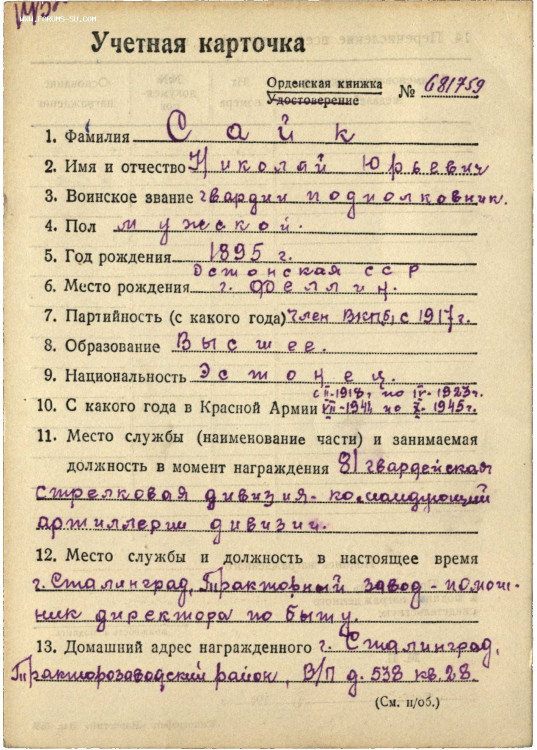 www.forums-su.com
Учетная карточка
Орденская книжка
Удостоверение № 681759
1. Фамилия Сайк
2. Имя и отчество Николай Юрьевич
3. Воинское звание гвардии подполковник.
4. Пол мужской.
5. Год рождения 1895 г.
Эстонская ССР
6. Место рождения г. Феллин.
7. Партийность (с какого года) Член ВКПб, с 1917 г.
8. Образование Высшее.
9. Национальность Эстонец.
с II-1918г. по IV-1923г.
10. С какого года в Красной Армии VII-1941 по X-1945г.
11. Место службы (наименование части) и занимаемая
должность в момент награждения 81 гвардейская
стрелковая дивизия - командующий
артиллерии дивизии.
12. Место службы и должность в настоящее время
г. Сталинград, Тракторный завод - помощ-
ник директора по быту.
13. Домашний адрес награжденного г. Сталинград,
Тракторозаводский район, В/П д. 538 кв. 28.
(См. н/об.)